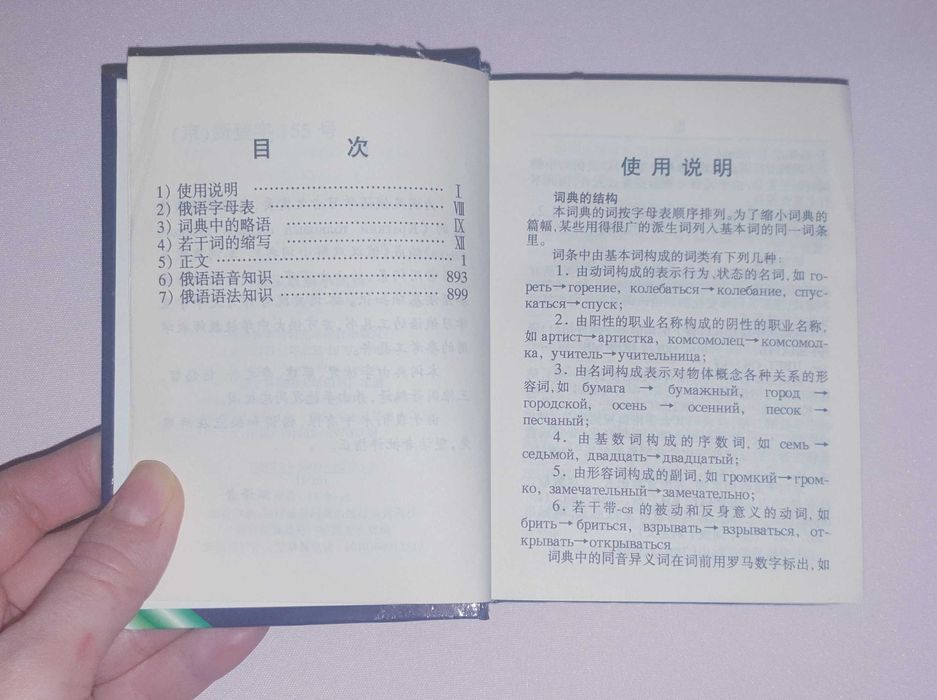 目 次
1) 使用说明 …………………………… Ⅰ
2) 俄语字母表 …………………………… Ⅷ
3) 词典中的略语 …………………………… Ⅸ
4) 若干词的缩写 …………………………… Ⅻ
5) 正文 …………………………… 1
6) 俄语语音知识 …………………………… 893
7) 俄语语法知识 …………………………… 899
使用说明
词典的结构
本词典的词按字母表顺序排列。为了缩小词典的
篇幅,某些用得很广的派生词列入基本词的同一词条
里。
词条中由基本词构成的词类有下列几种:
1. 由动词构成的表示行为、状态的名词,如 го-
реть→горение, колебаться→колебание, спус-
каться→спуск;
2. 由阳性的职业名称构成的阴性的职业名称,
如 артист→артистка, комсомолец→комсомол-
ка, учитель→учительница;
3. 由名词构成表示对物体概念各种关系的形
容词,如 бумага → бумажный, город →
городской, осень → осенний, песок →
песчаный;
4. 由基数词构成的序数词, 如 семь →
седьмой, двадцать→двадцатый;
5. 由形容词构成的副词, 如 громкий→гром-
ко, замечательный→замечательно;
6. 若干带-ся 的被动和反身意义的动词, 如
брить→бриться, взрывать→взрываться, от-
крывать→открываться
词典中的同音异义词在词前用罗马数字标出, 如